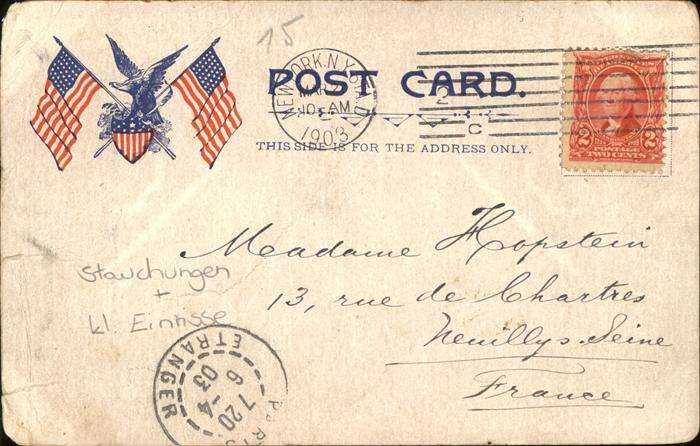 15
NEW YORK, N.Y.
10-AM
1903
POST CARD.
2
C
THIS SIDE IS FOR THE ADDRESS ONLY.
2 2
POSTAGE
TWO CENTS
Madame Hopstein
13, rue de Chartres
Neuilly s. Seine
France
Stauchungen
+
kl. Einrisse
PARIS
ETRANGER
7 20
6 -4
03